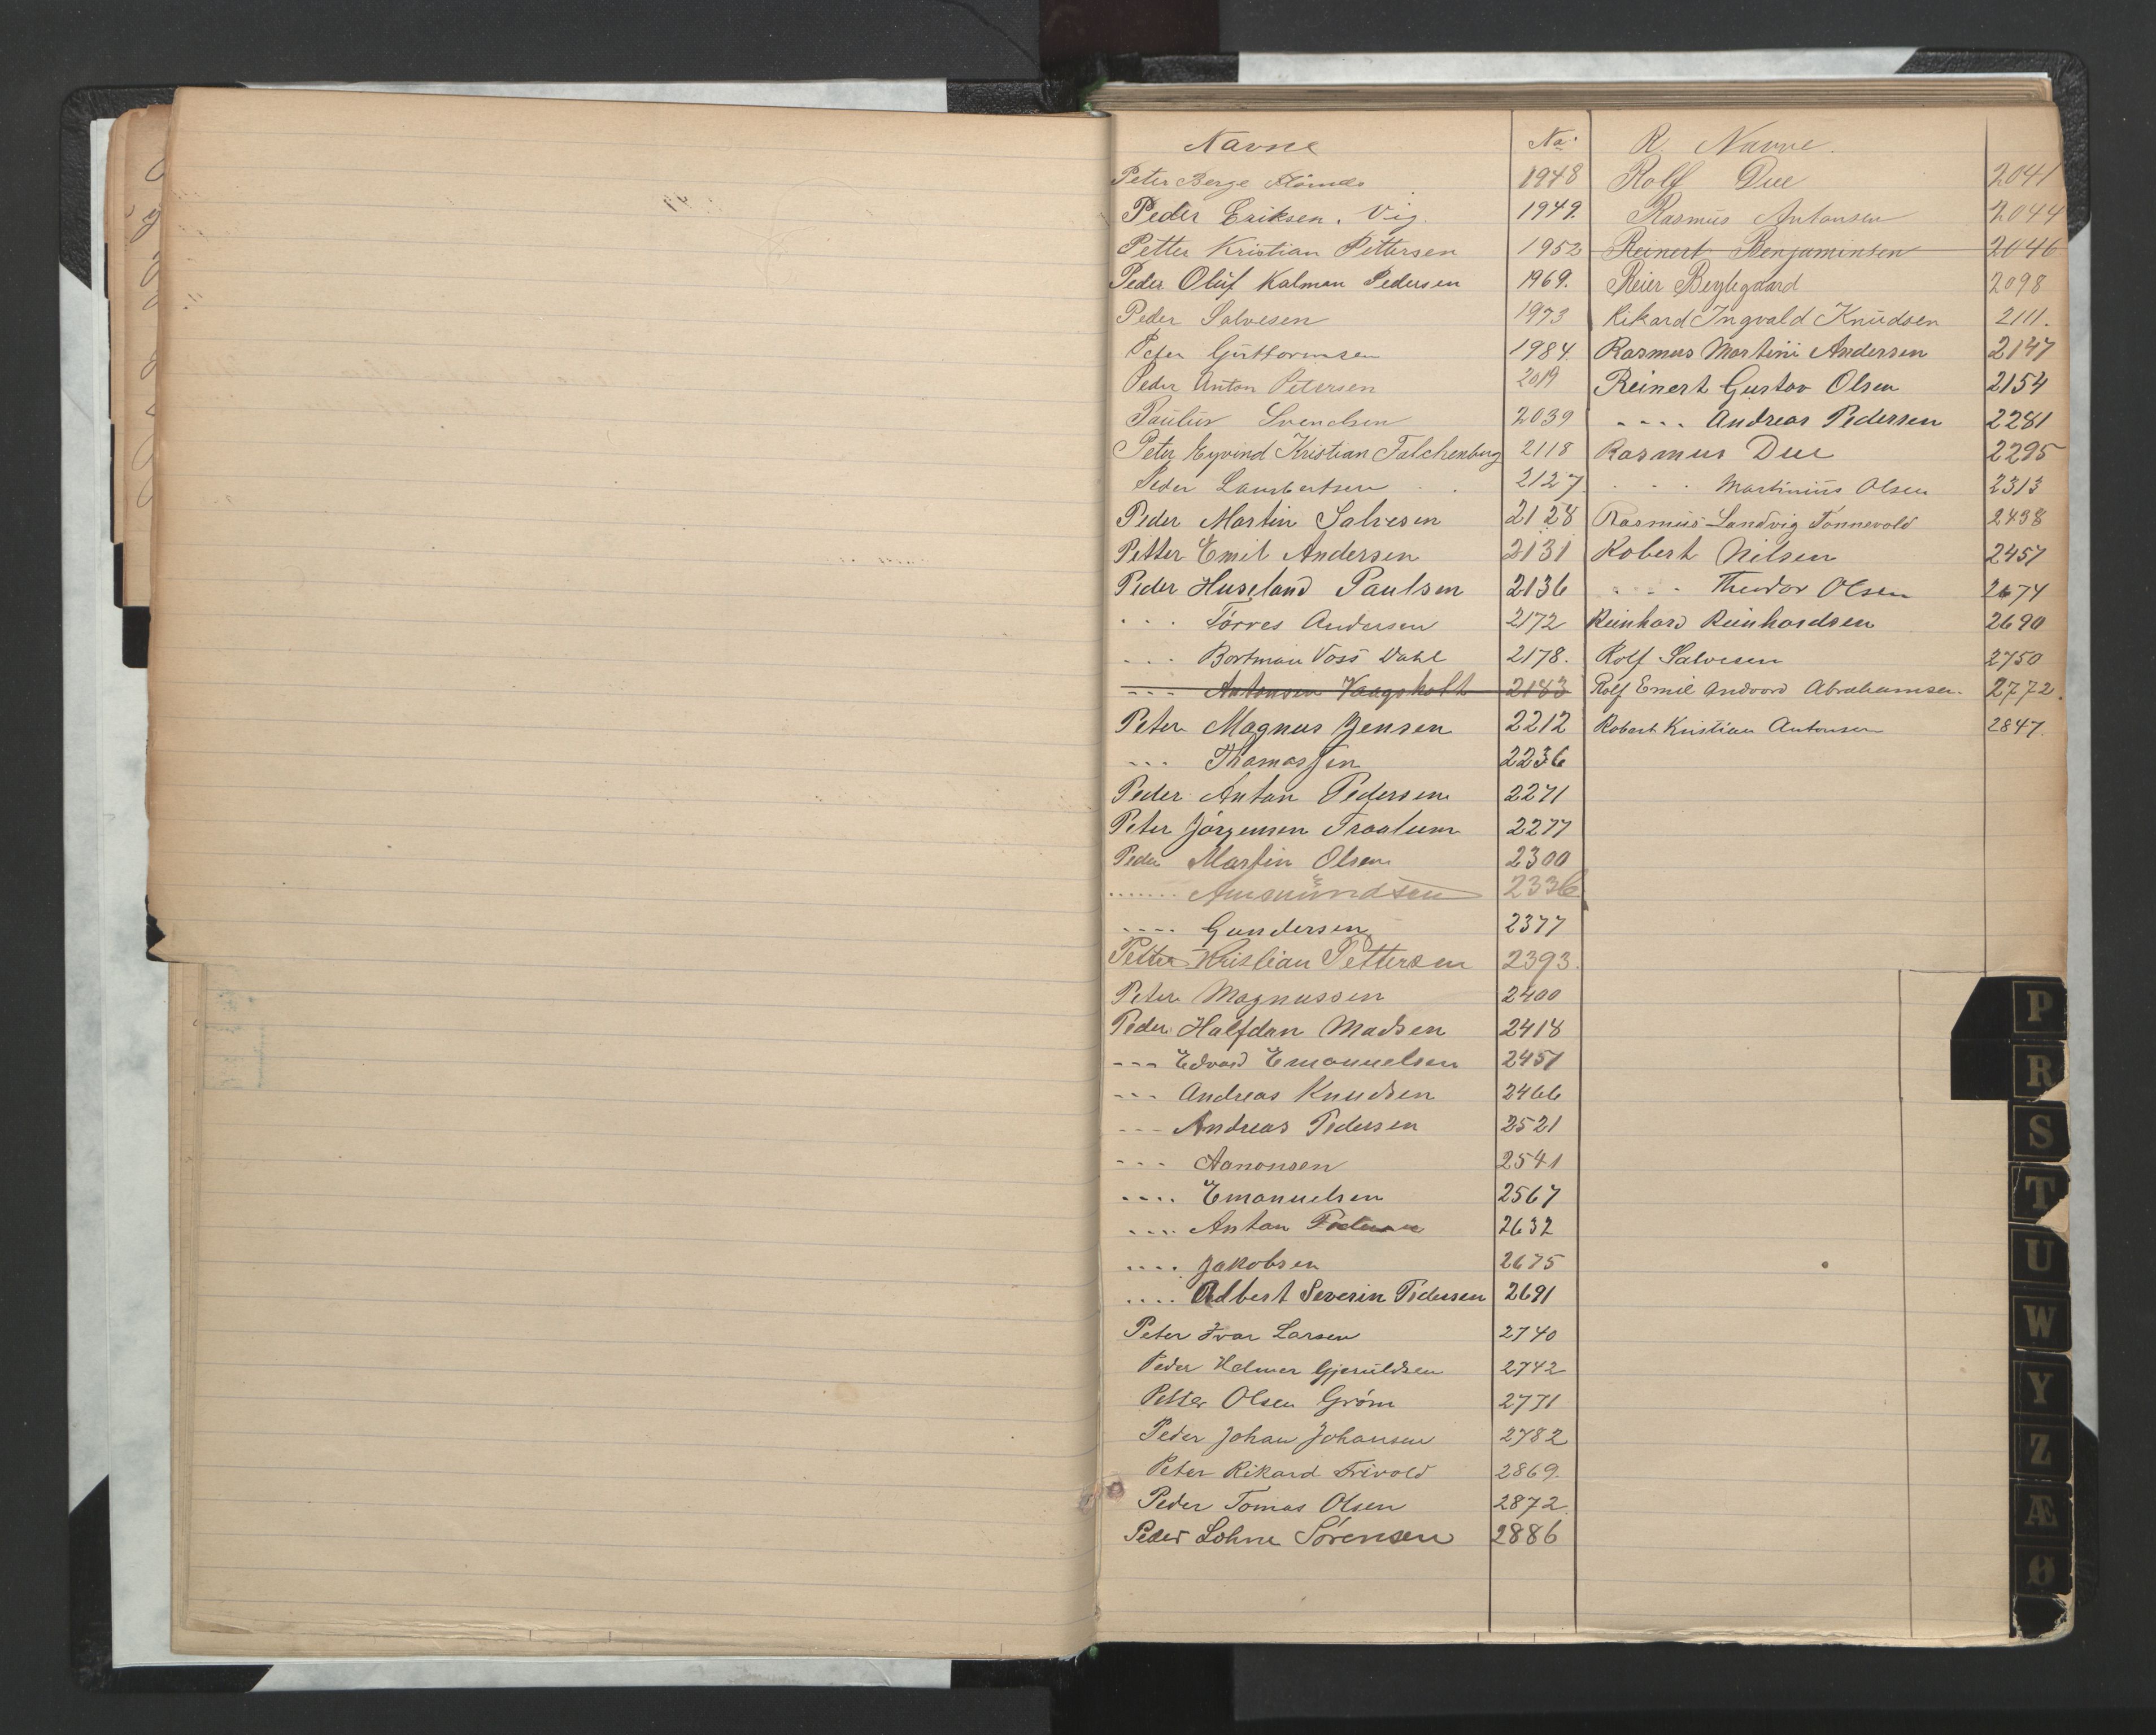 Navne No.
Peter Berge 1948
Peder Eriksen. Vig. 1949.
Petter Kristian Pettersen 1952
Peder Oluf Kalman Pedersen 1969.
Peder Salvesen 1973
Peter Guttormsen 1984.
Peder Anton Petersen 2019
Paulus Svendsen 2039
Peter Eyvind Kristian Falchenberg 2118
Peder Lambertsen 2127
Peder Martin Salvesen 2128
Petter Emil Andersen 2131
Peder Huseland Paulsen 2136
. . . Tórres Andersen 2172
. . . Bortman Voss Dahl 2178.
--- Antonsen Vaagsholt 2183
Peter Magnus Jensen 2212
--- Thomassen 2236
Peder Anton Pedersen 2271
Peter Jørgensen Traalum 2277
Peder Martin Olsen 2300
....... Amundsen 2336
---- Gundersen 2377
Petter Kristian Pettersen 2393.
Peter Magnussen 2400
Peder Halfdan Madsen 2418
--- Edvard Emanuelsen 2451
--- Andreas Knudsen 2466
--- Andreas Pedersen 2521
--- Aanonsen 2541
.... Emanuelsen 2567
.... Anton 2632
.... Jakobsen 2675
.... Albert Severin Pedersen 2691
Peter Ivar Larsen 2740
Peder Helmer Gjeruldsen 2742
Petter Olsen Grøm 2771
Peder Johan Johansen 2782
Peter Rikard Frivold 2869.
Peder Tomas Olsen 2872
Peder Lohne Sórensen 2886
R. Navne.
Rolf Due 2041
Rasmus Antonsen 2044
Reinert Benjaminsen 2046
Reier Beylegaard 2098
Rikard Ingvald Knudsen 2111.
Rasmus Martini Andersen 2147
Reinert Gustav Olsen 2154
---- Andreas Pedersen 2281
Rasmus Due 2295
. . . Martinius Olsen 2313
Rasmus Landvig Tønnevold 2438
Robert Nilsen 2457
. . . Theodor Olsen 2674
Reinhard Reinhardsen 2690
Rolf Salvesen 2750
Rolf Emil Andvord Abrahamsen. 2772.
Robert Kristian Antonsen 2847.
P
R
S
T
U
W
Y
Z
Æ
Ø